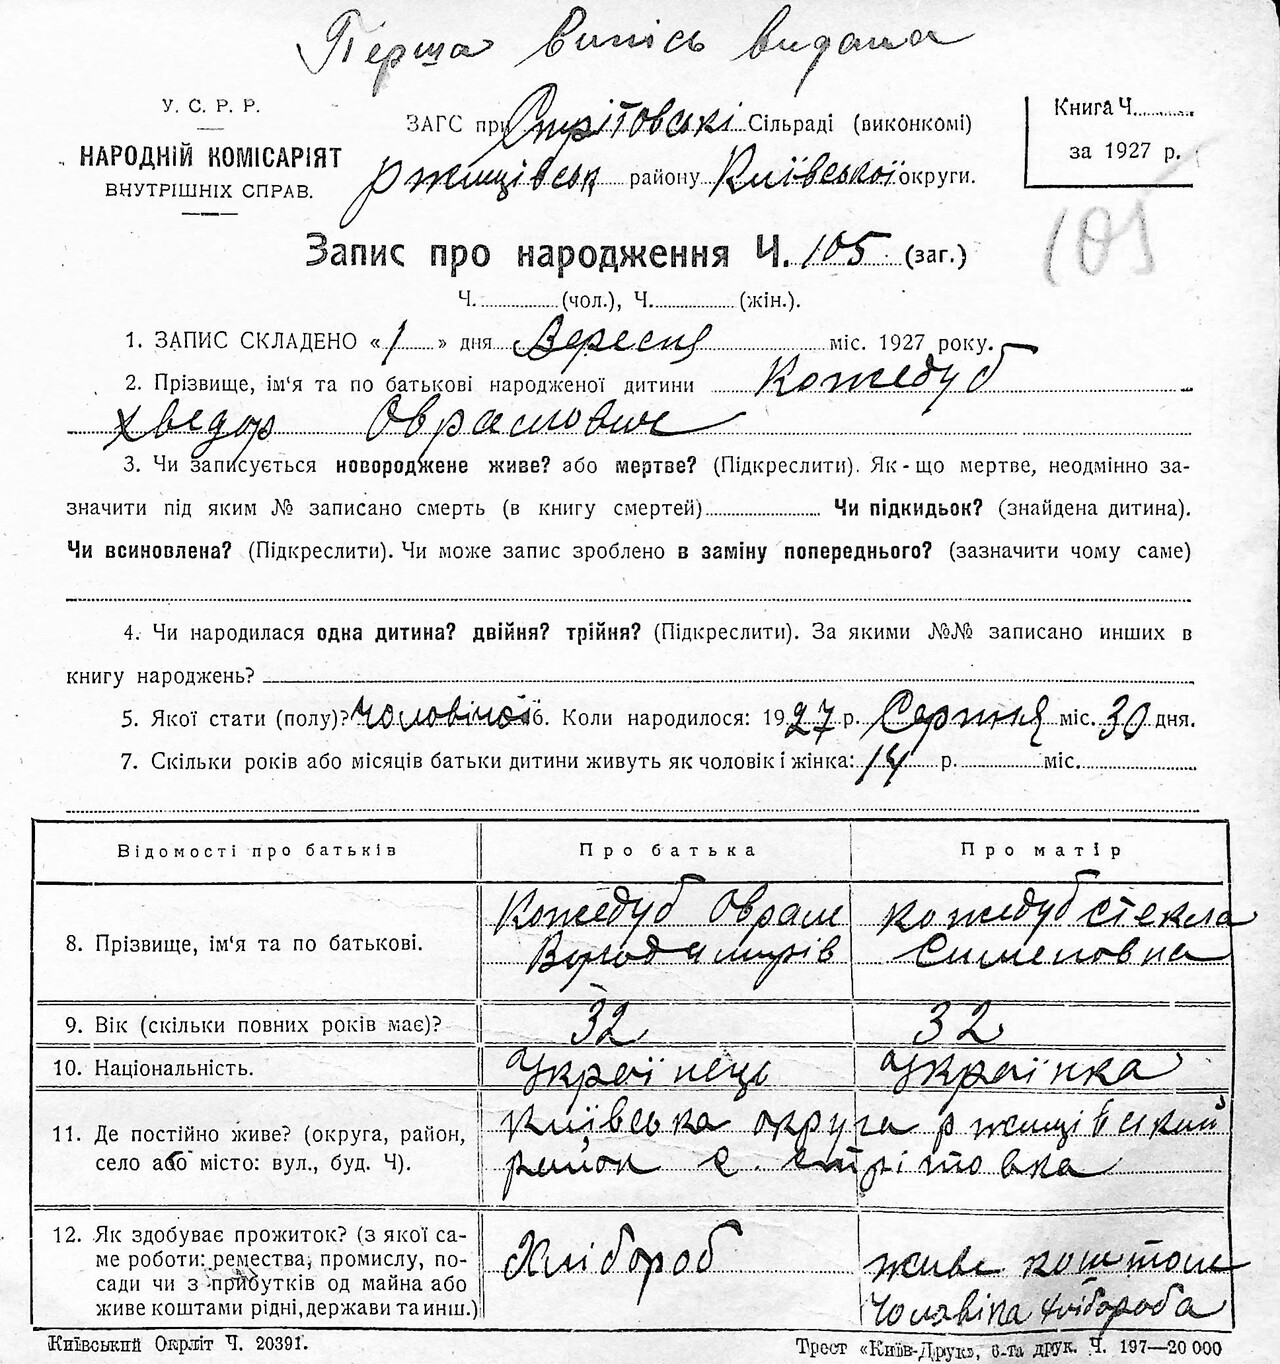 Перша випись видана
У. С. Р. Р.
НАРОДНІЙ КОМІСАРІЯТ
ВНУТРІШНІХ СПРАВ.
ЗАГС при Стрітовські Сільраді (виконкомі)
Ржищівськ району Київської округи.
Книга Ч.
за 1927 р.
105
Запис про народження Ч. 105 (заг.)
Ч. (чол.), Ч. (жін.).
1. ЗАПИС СКЛАДЕНО «1» дня Вересня міс. 1927 року.
2. Прізвище, ім'я та по батькові народженої дитини Кожедуб
Хведор Оврамович
3. Чи записується новороджене живе? або мертве? (Підкреслити). Як-що мертве, неодмінно за-
значити під яким № записано смерть (в книгу смертей) Чи підкидьок? (знайдена дитина).
Чи всиновлена? (Підкреслити). Чи може запис зроблено в заміну попереднього? (зазначити чому саме)
4. Чи народилася одна дитина? двійня? трійня? (Підкреслити). За якими №№ записано инших в
книгу народжень?
5. Якої стати (полу)? чоловічої 6. Коли народилося: 1927 р. Серпня міс. 30 дня.
7. Скільки років або місяців батьки дитини живуть як чоловік і жінка: 14 р. міс.
Відомості про батьків Про батька Про матір
8. Прізвище, ім'я та по батькові.
Кожедуб Оврам
Володимирів
кожедуб стекла
Сименовна
9. Вік (скільки повних років має)? 32 32
10. Національність. Українець Українка
11. Де постійно живе? (округа, район,
село або місто: вул., буд. Ч).
київська округа ржищівський
район с. стрітовка
12. Як здобуває прожиток? (з якої са-
ме роботи: ремества, промислу, по-
сади чи з прибутків од майна або
живе коштами рідні, держави та инш.)
Хлібороб
живе коштом
Чоловіка хлібороба
Київський Окрліт Ч. 20391.
Трест «Київ-Друк», 6-та друк. Ч. 197—20 000